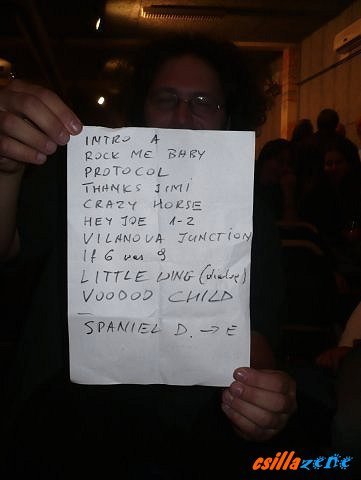 INTRO A
ROCK ME BABY
PROTOCOL
THANKS JIMI
CRAZY HORSE
HEY JOE 1-2
VILANOVA JUNCTION
If 6 was 9
LITTLE WING (dialog)
VOODOO CHILD
—
SPANIEL D. → E
csillazene